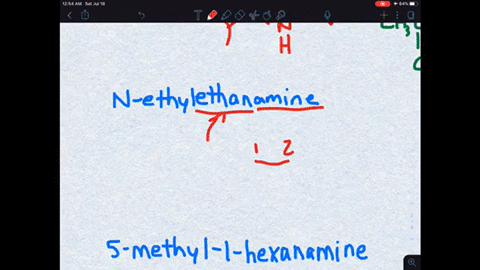 12:54 AM Sat Jul 18
64%
N
H
CH3
N-ethylethanamine
1 2
5-methyl-1-hexanamine